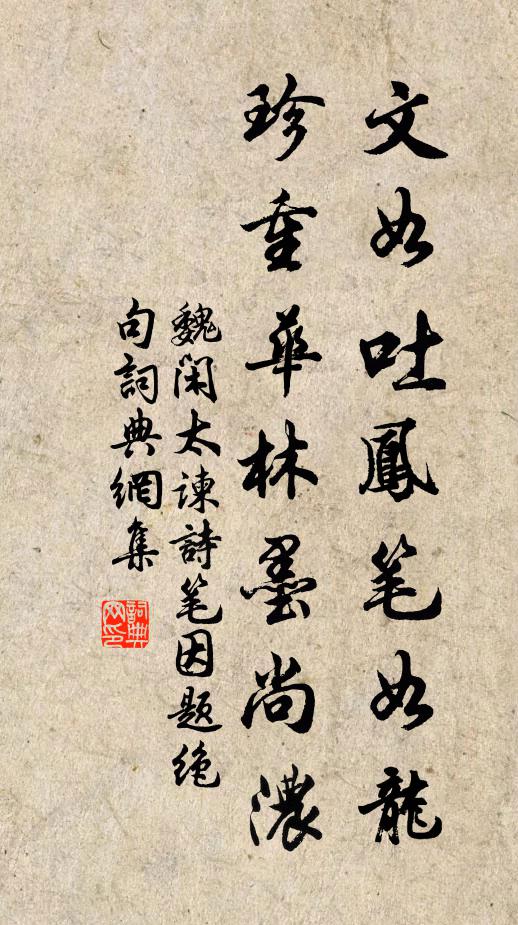 文如吐鳳笔如龍
珍重華林墨尚濃
魏闲太谏詩笔因题绝
句詞典網集
詞典
网印